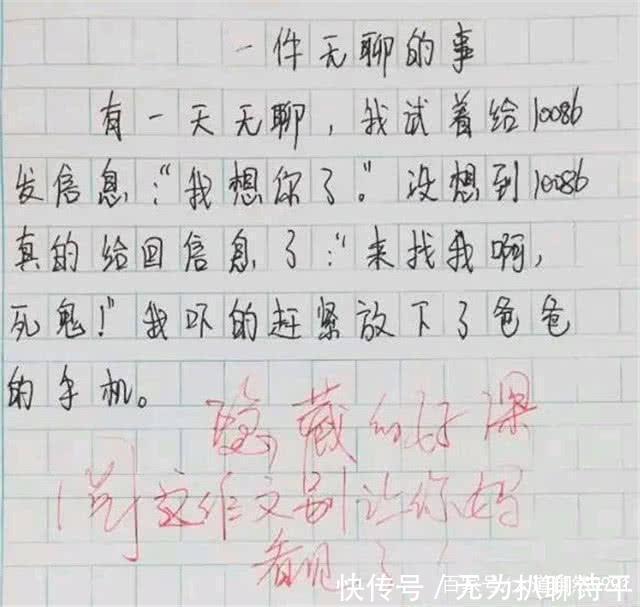 一件无聊的事
有一天无聊，我试着给10086
发信息：“我想你了。”没想到10086
真的给回信息了：“来找我啊，
死鬼！”我吓的赶紧放下了爸爸
的手机。
隐藏的好深
这作文别让你妈
看见了！
快传号／无为扒聊诗牛